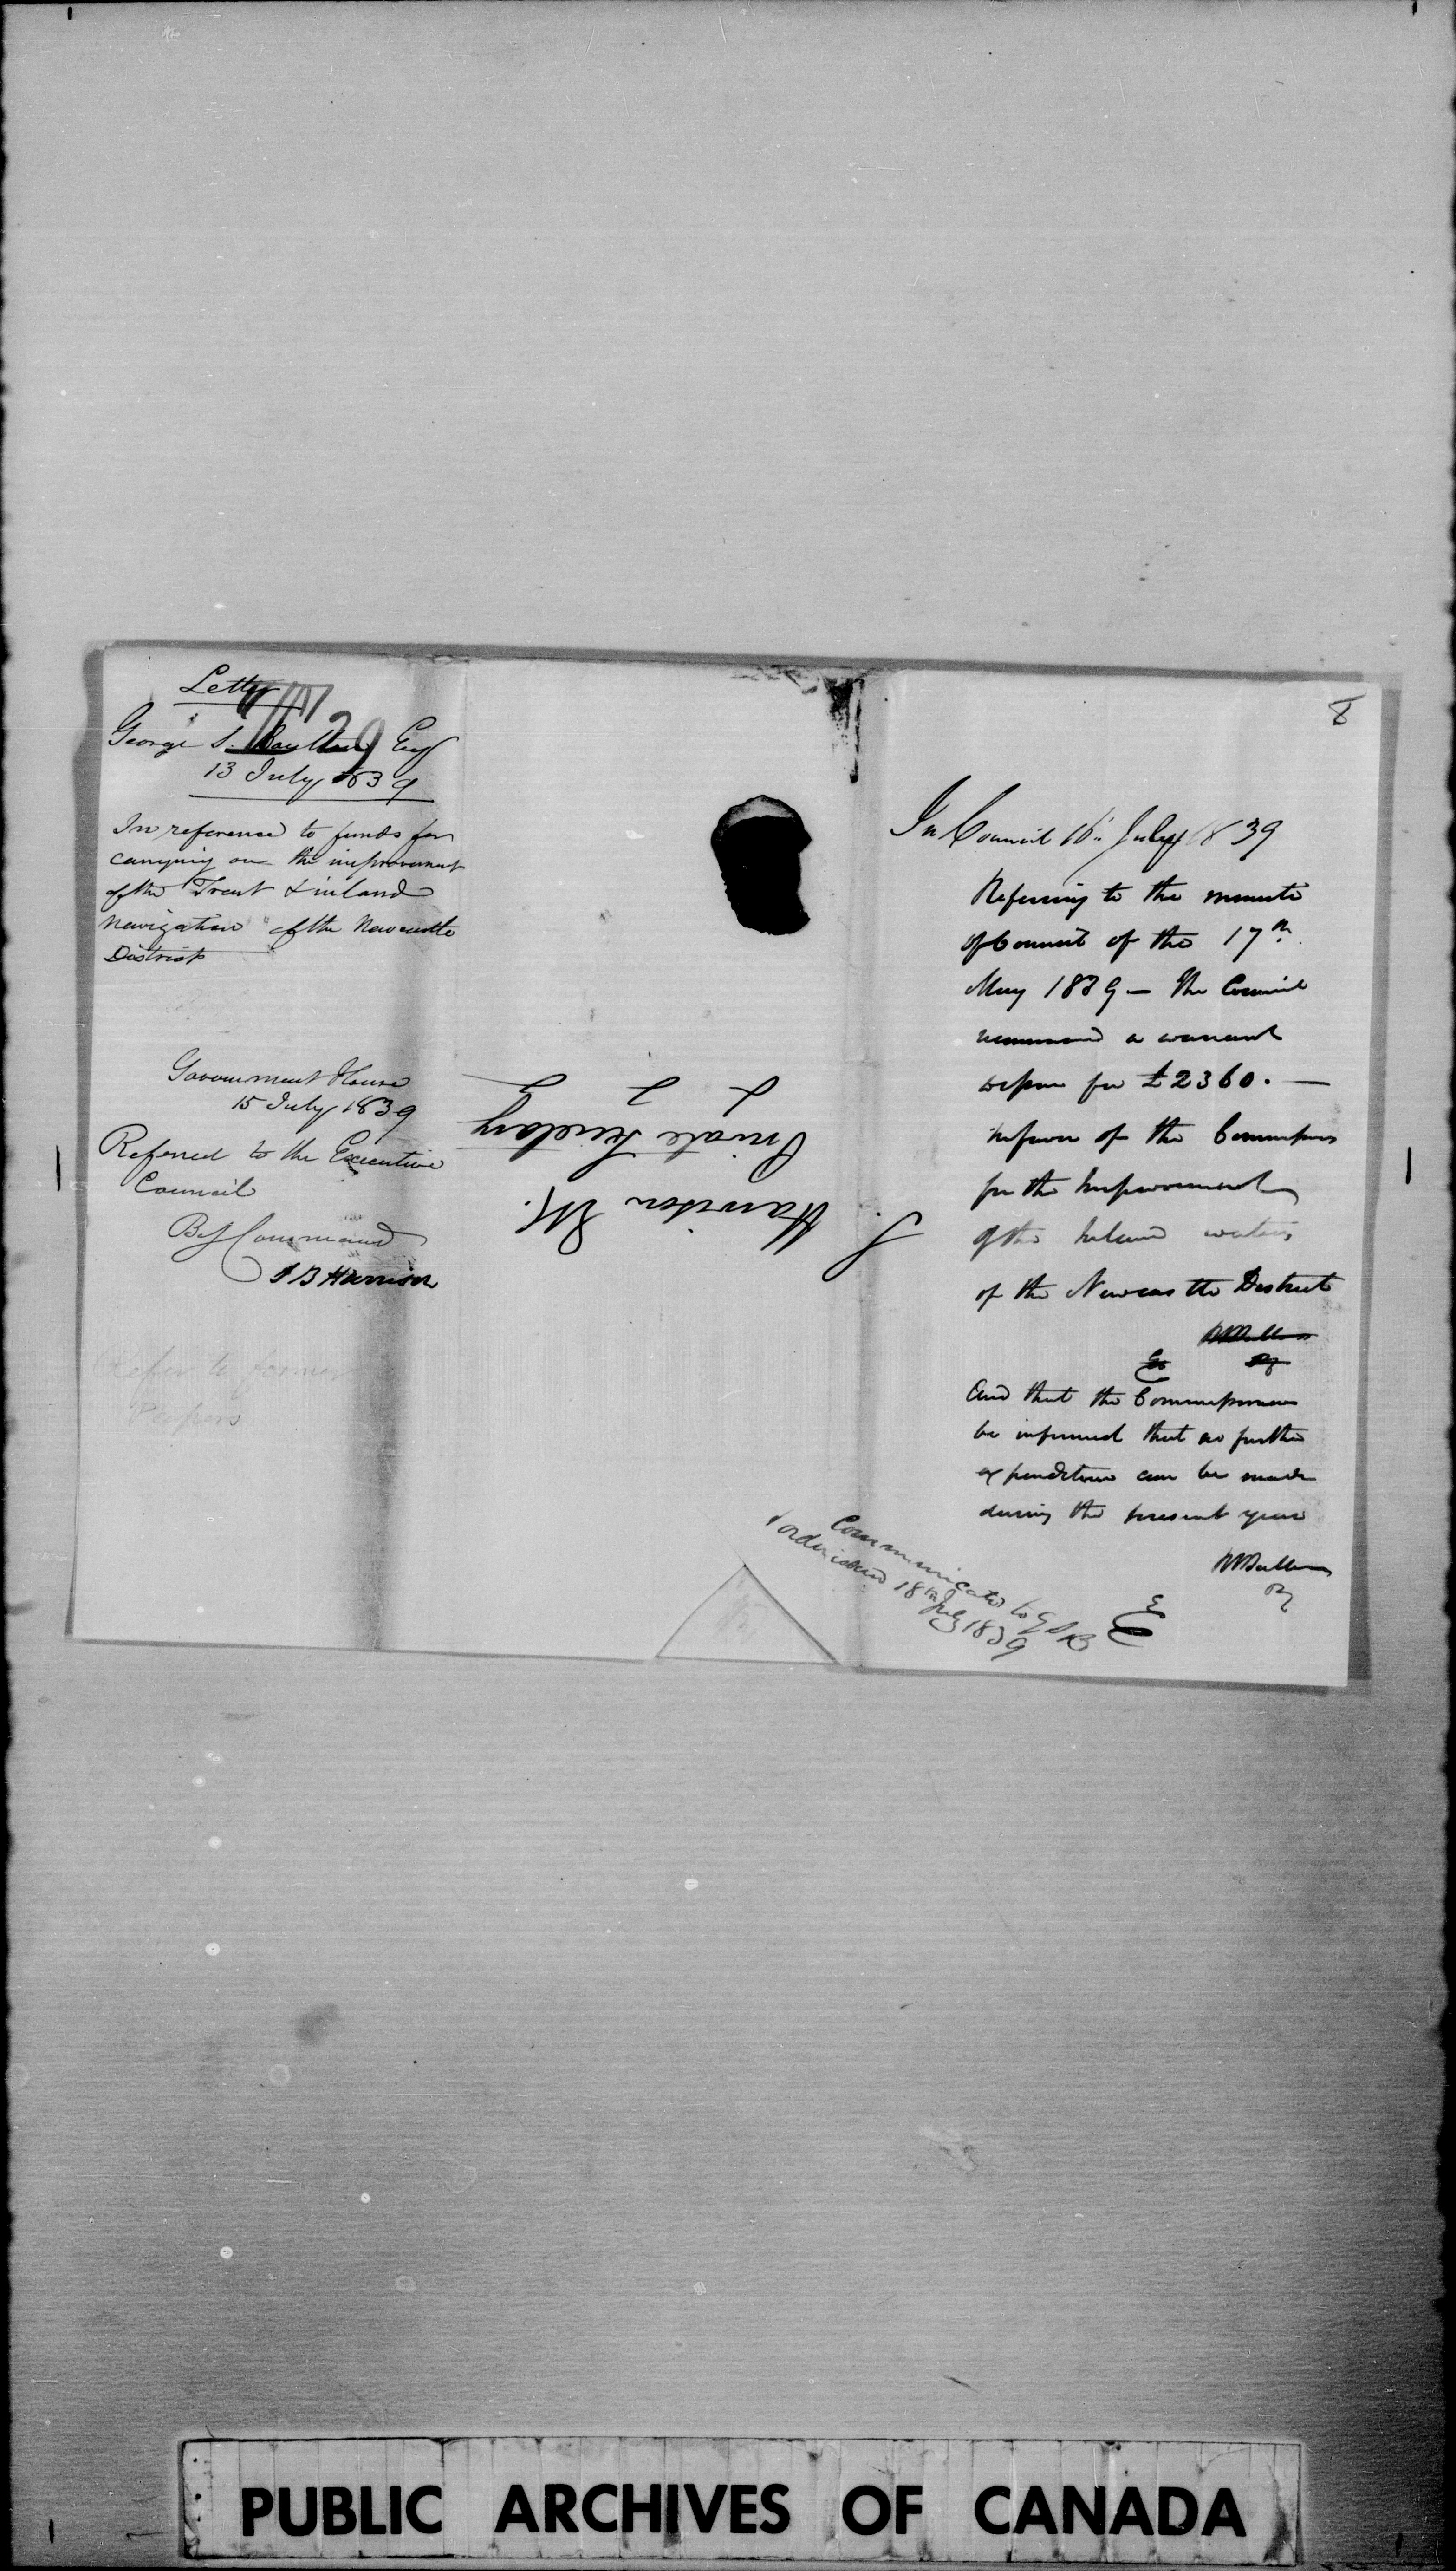 Letter
George S. Boulton Esq
13 July 1839
In reference to funds for
carrying on the improvement
of the Trent & inland
navigation of the Newcastle
District
Government House
15 July 1839
Referred to the Executive
Council
By Command
S B Harrison
Refer to former
Papers
29
Harrison
Private Secretary
8
In Council 16th July 1839
Referring to the minute
of Council of the 17th
May 1839 — The Council
recommend a warrant
for £2360. —
in favor of the Commissioners
for the Improvement
of the Inland waters
of the Newcastle District
And that the Commissioners
be informed that no further
expenditure can be made
during the present year
Communicated to G S B
& order issued 18th July 1839
PUBLIC ARCHIVES OF CANADA